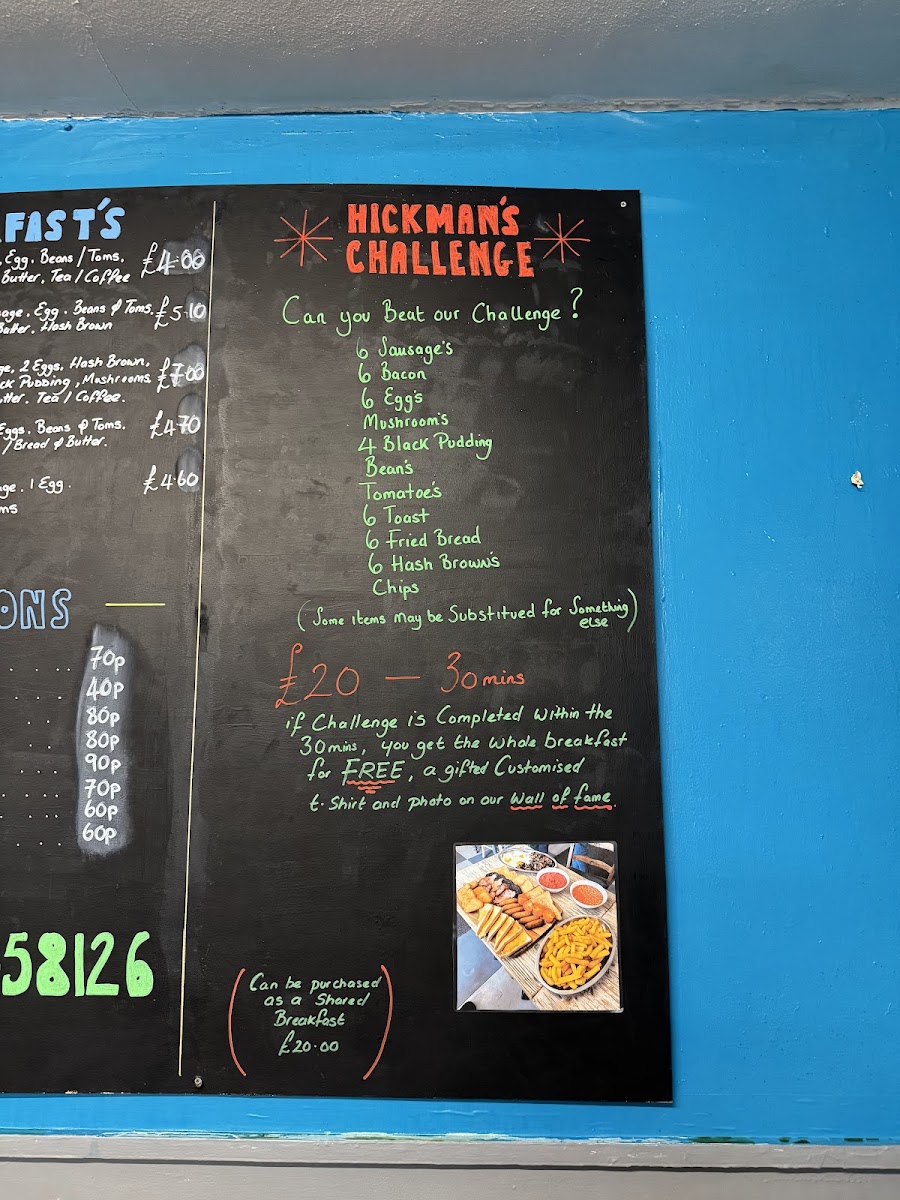 FAST'S
Egg. Beans / Toms. £4.00
Butter. Tea / Coffee
Egg. Beans & Toms. £5.10
Hash Brown
2 Eggs. Hash Brown. £7.00
Pudding, Mushrooms.
Tea / Coffee.
Eggs. Beans & Toms. £4.70
/ Bread & Butter.
1 Egg. £4.60
ONS
70p
40p
80p
80p
90p
70p
60p
60p
58126
HICKMAN'S
CHALLENGE
Can you Beat our Challenge?
6 Sausage's
6 Bacon
6 Egg's
Mushroom's
4 Black Pudding
Bean's
Tomatoe's
6 Toast
6 Fried Bread
6 Hash Brown's
Chips
(Some items may be Substitued for Something
else)
£20 — 30mins
if Challenge is Completed within the
30mins, you get the whole breakfast
for FREE, a gifted Customised
t-Shirt and photo on our Wall of fame.
(Can be purchased
as a Shared
Breakfast
£20.00)